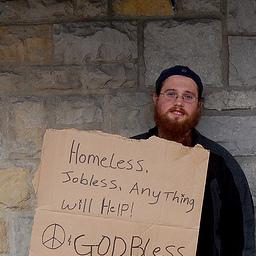 Homeless,
Jobless, Anything
Will Help!
& GOD Bless